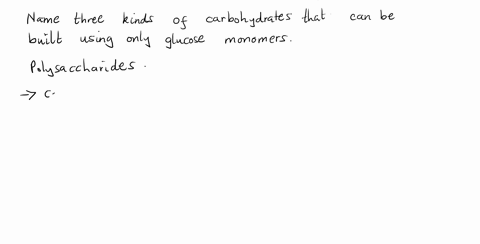 Name three kinds of carbohydrates that can be
built using only glucose monomers.
Polysaccharides.
→ c-